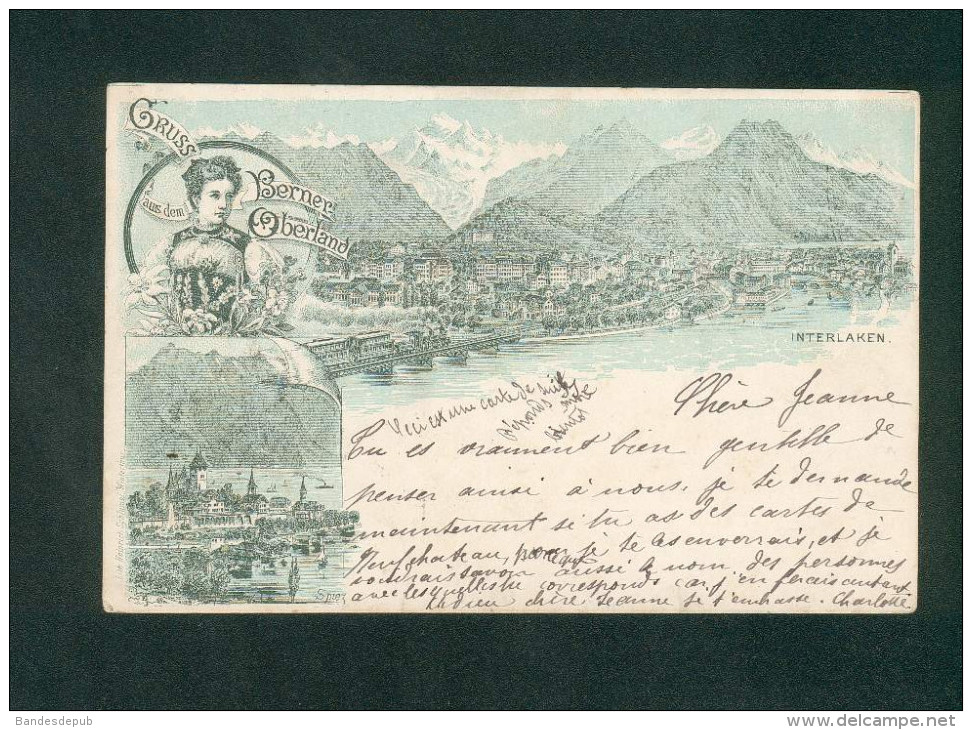 Gruss
aus dem
Berner
Oberland
INTERLAKEN.
Ceci est une carte de
réponds
bientôt
Chère Jeanne
Tu es vraiment bien gentille de
penser ainsi à nous, je te demande
maintenant si tu as des cartes de
Neufchateau, je te les enverrais, et je
aussi le nom des personnes
avec lesquelles tu corresponds car j'en ferais autant
Adieu chère Jeanne je t'embrasse. Charlotte
Spiez
Bandesdepub
www.delcampe.net